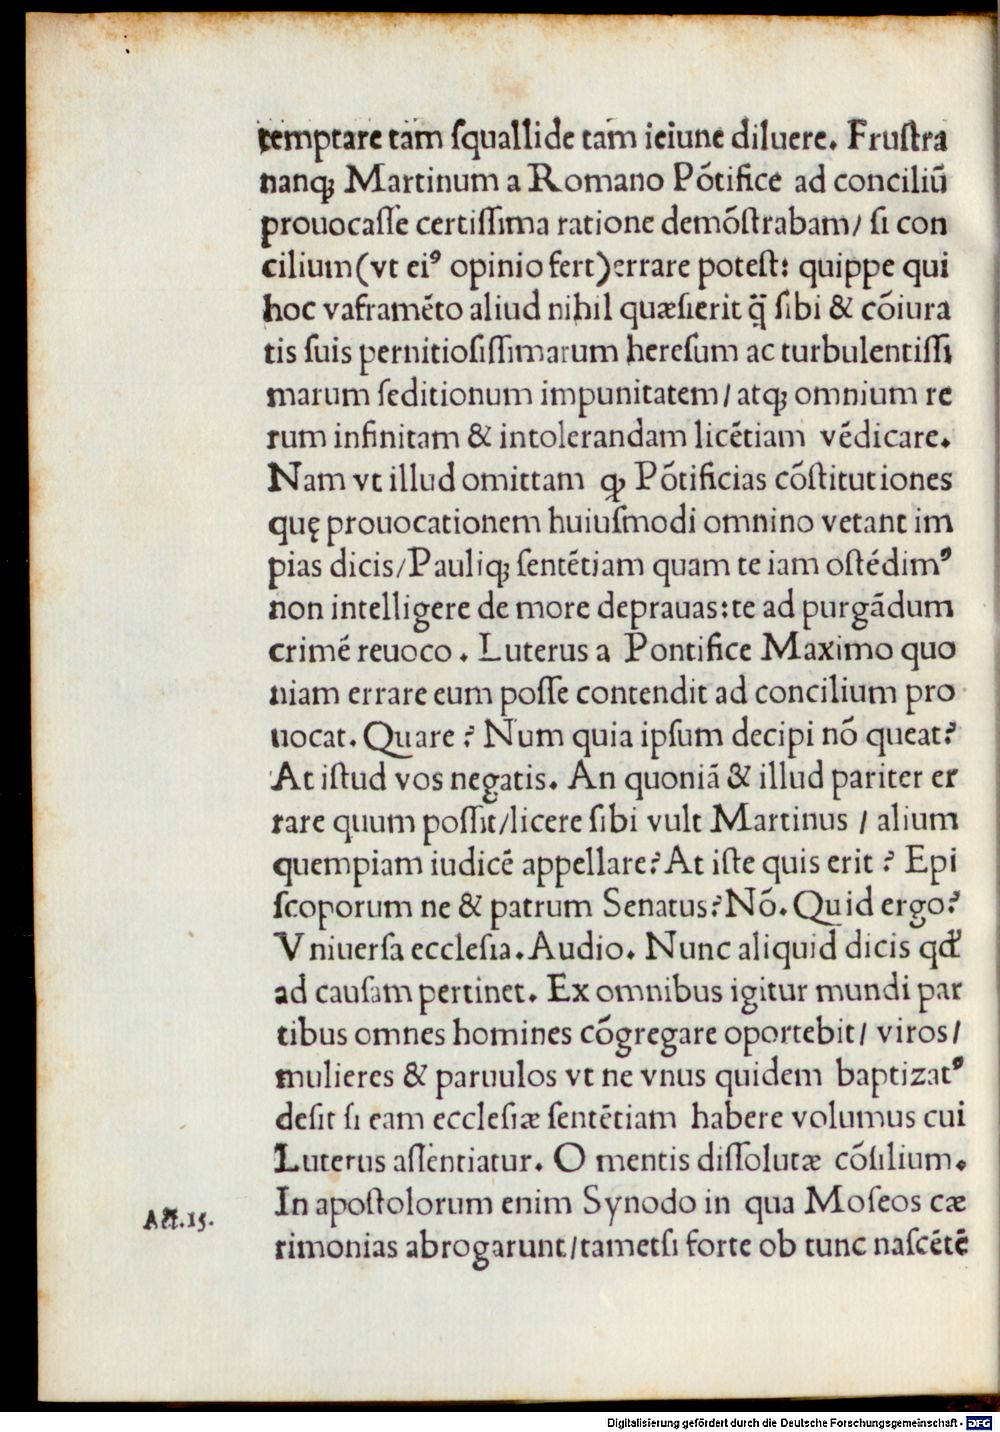 temptare tam ſquallide tam ieiune diluere. Fruſtra
nanqꝫ Martinum a Romano Põtifice ad conciliũ
prouocaſſe certiſſima ratione demõſtrabam/ ſi con
cilium (vt eiꝰ opinio fert) errare poteſt: quippe qui
hoc vaframẽto aliud nihil quæſierit q̃ ſibi & cõiura
tis ſuis pernitioſiſſimarum hereſum ac turbulentiſſi
marum ſeditionum impunitatem/ atqꝫ omnium re
rum infinitam & intolerandam licẽtiam vẽdicare.
Nam vt illud omittam ꝙ Põtificias cõſtitutiones
quę prouocationem huiuſmodi omnino vetant im
pias dicis/ Pauliqꝫ ſentẽtiam quam te iam oſtẽdimꝰ
non intelligere de more deprauas: te ad purgãdum
crimẽ reuoco. Luterus a Pontifice Maximo quo
niam errare eum poſſe contendit ad concilium pro
uocat. Quare? Num quia ipſum decipi nõ queat?
At iſtud vos negatis. An quoniã & illud pariter er
rare quum poſſit/ licere ſibi vult Martinus / alium
quempiam iudicẽ appellare? At iſte quis erit? Epi
ſcoporum ne & patrum Senatus? Nõ. Quid ergo?
Vniuerſa eccleſia. Audio. Nunc aliquid dicis qđ
ad cauſam pertinet. Ex omnibus igitur mundi par
tibus omnes homines cõgregare oportebit/ viros/
mulieres & paruulos vt ne vnus quidem baptizatꝰ
deſit ſi eam eccleſiæ ſentẽtiam habere volumus cui
Luterus aſſentiatur. O mentis diſſolutæ cõſilium.
In apoſtolorum enim Synodo in qua Moſeos cæ
Act. 15.
rimonias abrogarunt/ tametſi forte ob tunc naſcẽtẽ
Digitalisierung gefördert durch die Deutsche Forschungsgemeinschaft - DFG